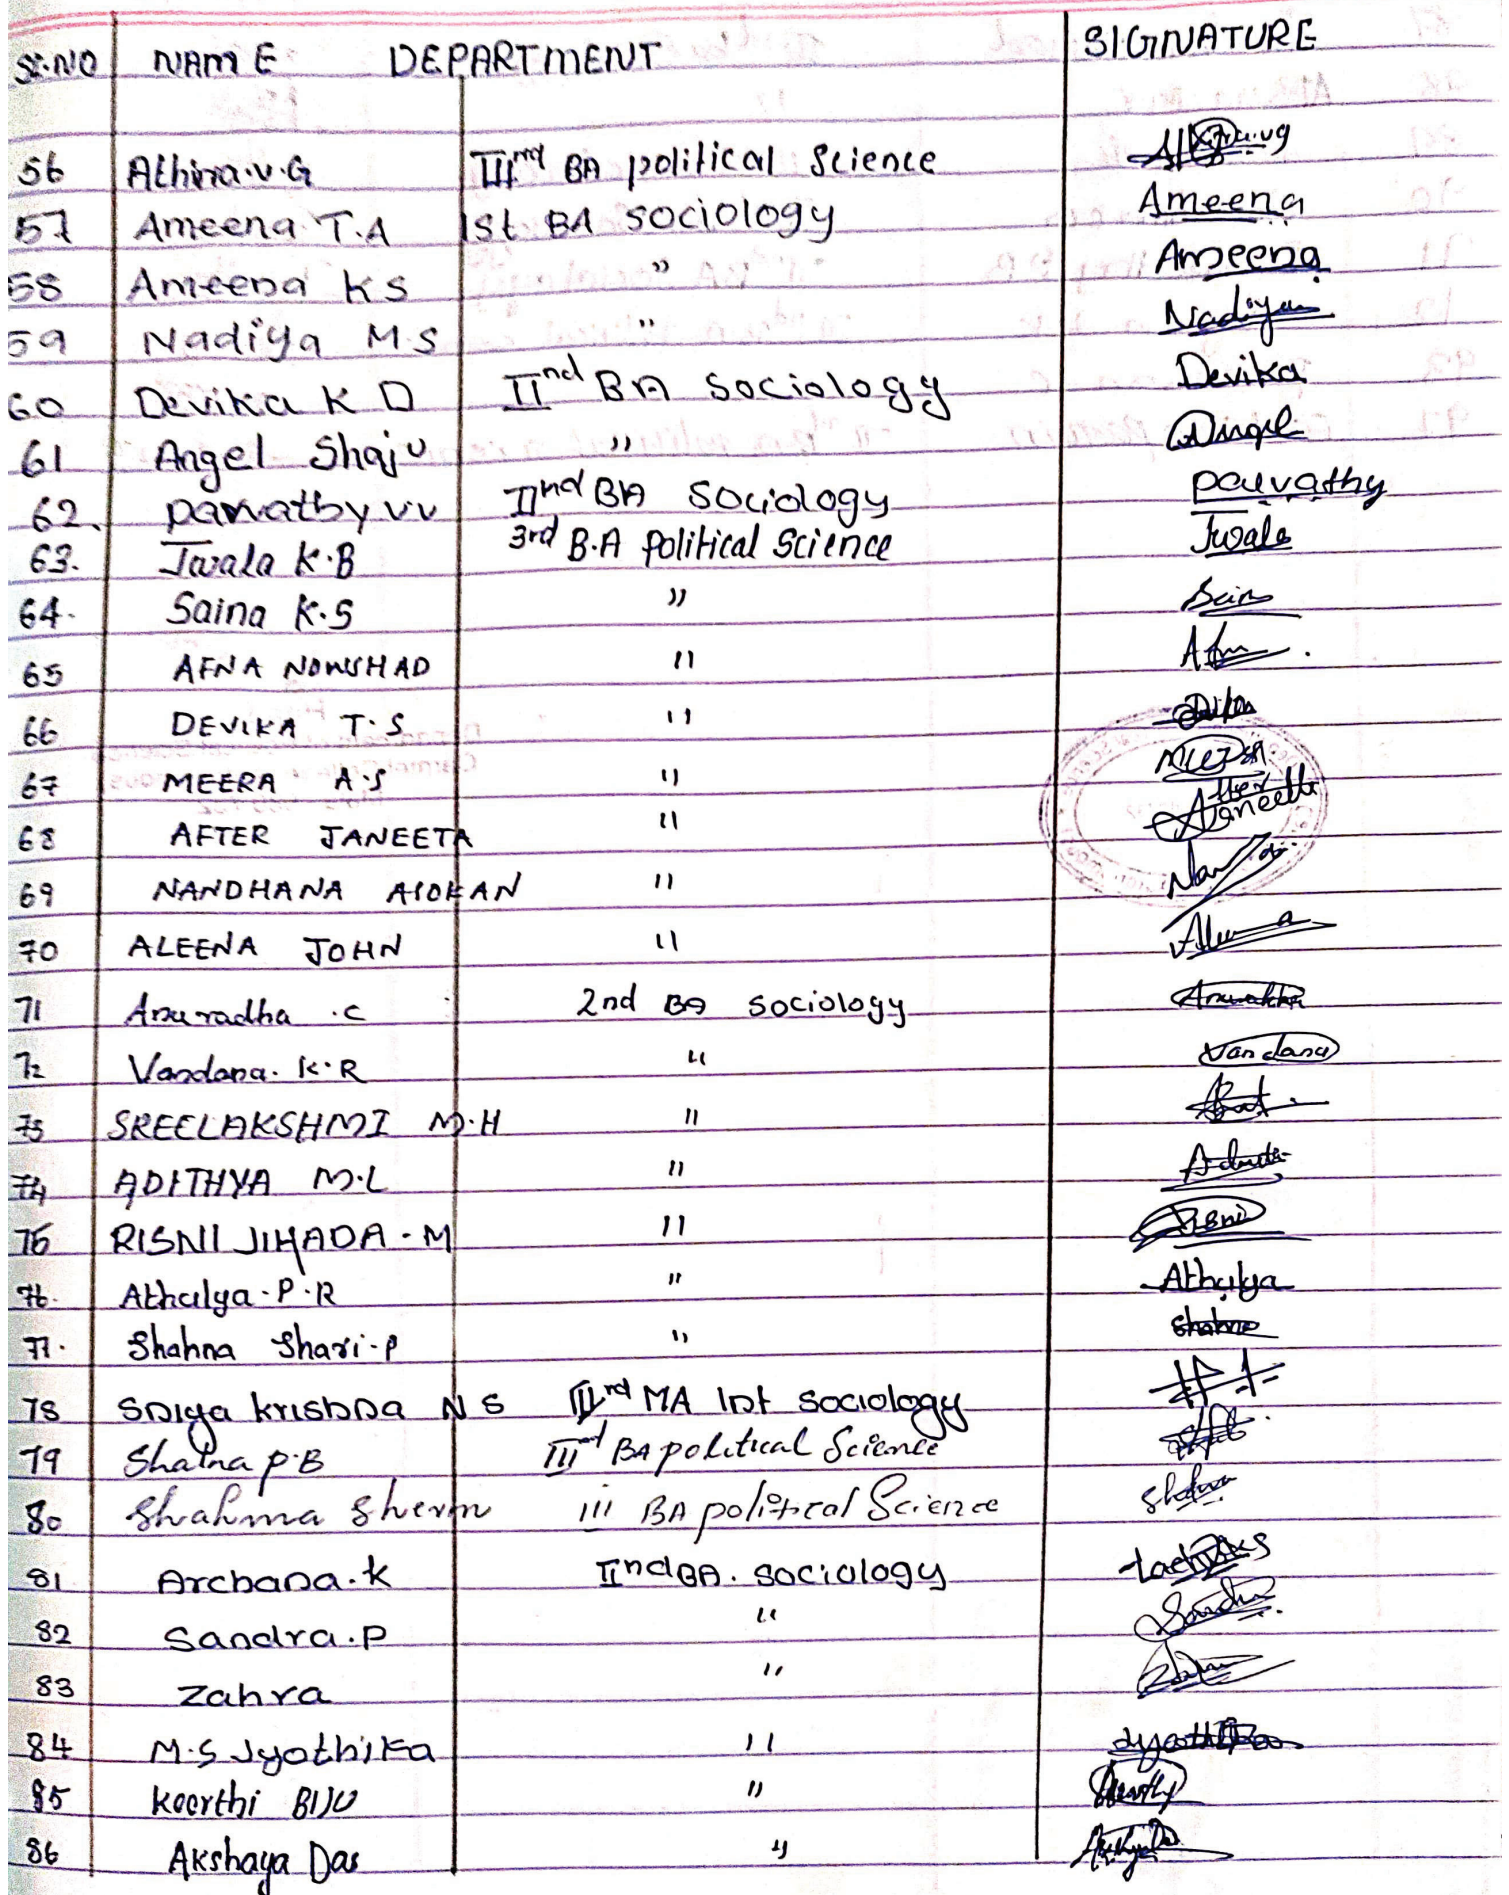 Sl.NO NAME DEPARTMENT SIGNATURE
56 Athira.v.G IIIrd BA political Science
57 Ameena T.A 1st BA sociology Ameena
58 Ameena KS " Ameena
59 Nadiya M.S " Nadiya
60 Devika K D IInd BA Sociology Devika
61 Angel Shaju " Angel
62. parvathy vv IInd BA Sociology parvathy
63. Jwala K.B 3rd B.A political Science Jwala
64. Saina K.S "
65 AFNA NOWSHAD "
66 DEVIKA T.S "
67 MEERA A.S "
68 AFTER JANEETA "
69 NANDHANA ASOKAN "
70 ALEENA JOHN "
71 Anuradha .C 2nd BA sociology
72 Vandana. K.R " Vandana
73 SREELAKSHMI M.H "
74 ADITHYA M.L "
75 RISNI JIHADA.M " Risni
76. Athulya.P.R " Athulya
77. Shahna Shari.P "
78 Sniya krishna N S IIIrd MA Int sociology
79 Shalna P.B IIIrd BA political Science
80 Shahma Sherin III BA political Science
81 Archana.k IInd BA. sociology
82 Sandra.P "
83 Zahra "
84 M.S Jyothika "
85 Keerthi BIJU "
86 Akshaya Das "